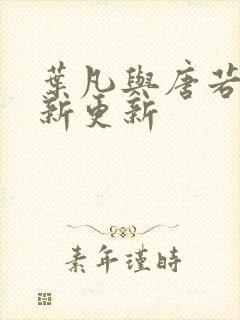 葉凡與唐若
新更新
素年瑾時